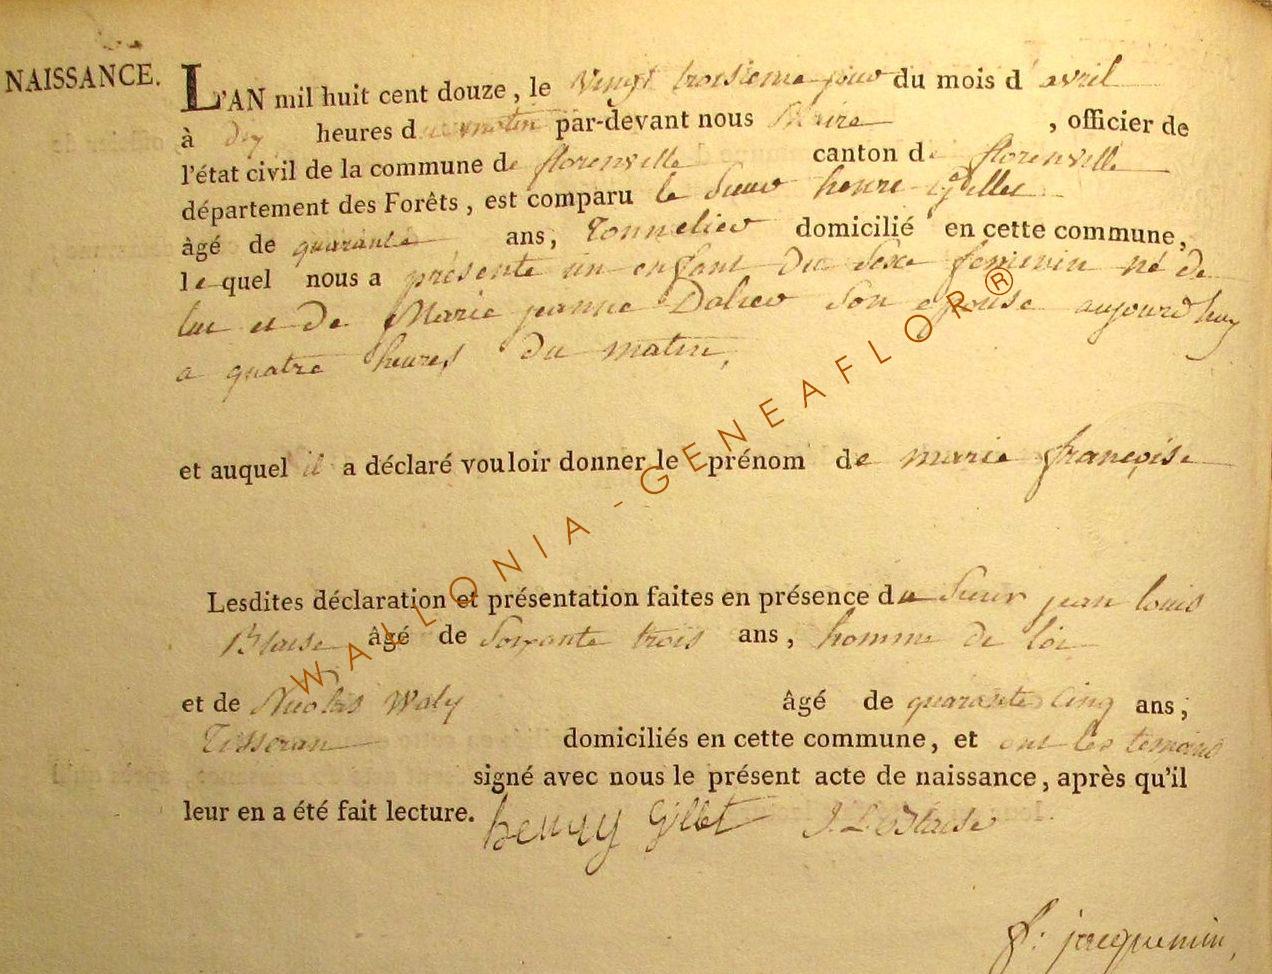 NAISSANCE.
L'AN mil huit cent douze, le vingt troisieme jour du mois d'avril
à dix heures du matin par-devant nous Maire , officier de
l'état civil de la commune de florenville canton de florenville
département des Forêts, est comparu le Sieur henri Gillet
âgé de quarante ans, Tonnelier domicilié en cette commune,
lequel nous a présenté un enfant du Sexe feminin né de
lui et de Marie jeanne son epouse aujourd'huy
a quatre heures du matin,
et auquel il a déclaré vouloir donner le prénom de marie françoise
Lesdites déclaration et présentation faites en présence du Sieur jean louis
Blaise âgé de Soixante trois ans, homme de loi
et de Nicolas Waly âgé de quarante cinq ans;
Tisseran domiciliés en cette commune, et ont les temoins
signé avec nous le présent acte de naissance, après qu'il
leur en a été fait lecture. henry Gillet J. L. Blaise
f: jacquemin,
WALLONIA - GENEAFLOR ®